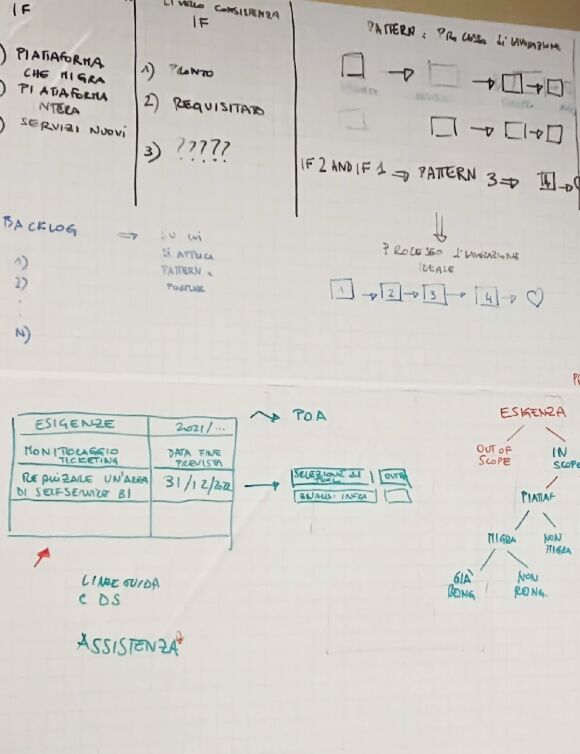 IF
) PIATTAFORMA
CHE MIGRA
) PIATTAFORMA
INTERA
) SERVIZI NUOVI
LIVELLO CONSISTENZA
IF
1) PRONTO
2) REQUISITATO
3) ?????
PATTERN: PROCESSO DI LAVORAZIONE
IF 2 AND IF 1 ⇒ PATTERN 3 ⇒ 4 →
PROCESSO DI LAVORAZIONE
IDEALE
1 → 2 → 3 → 4 → ♡
BACKLOG ⇒ SU CUI
SI APPLICA
PATTERN
1)
2)
N)
ESIGENZE 2021/...
MONITORAGGIO
TICKETING
DATA FINE
PREVISTA
REALIZZARE UN'AREA
DI SELFSERVICE BI
31/12/2022
POA
SELEZIONE DI
TOOL
OUTPUT
ANALISI INFRA
LINEE GUIDA
CDS
ASSISTENZA
ESIGENZA
OUT OF
SCOPE
IN
SCOPE
PIATTAF
MIGRA
NON
MIGRA
GIÀ
RONG.
NON
RONG.